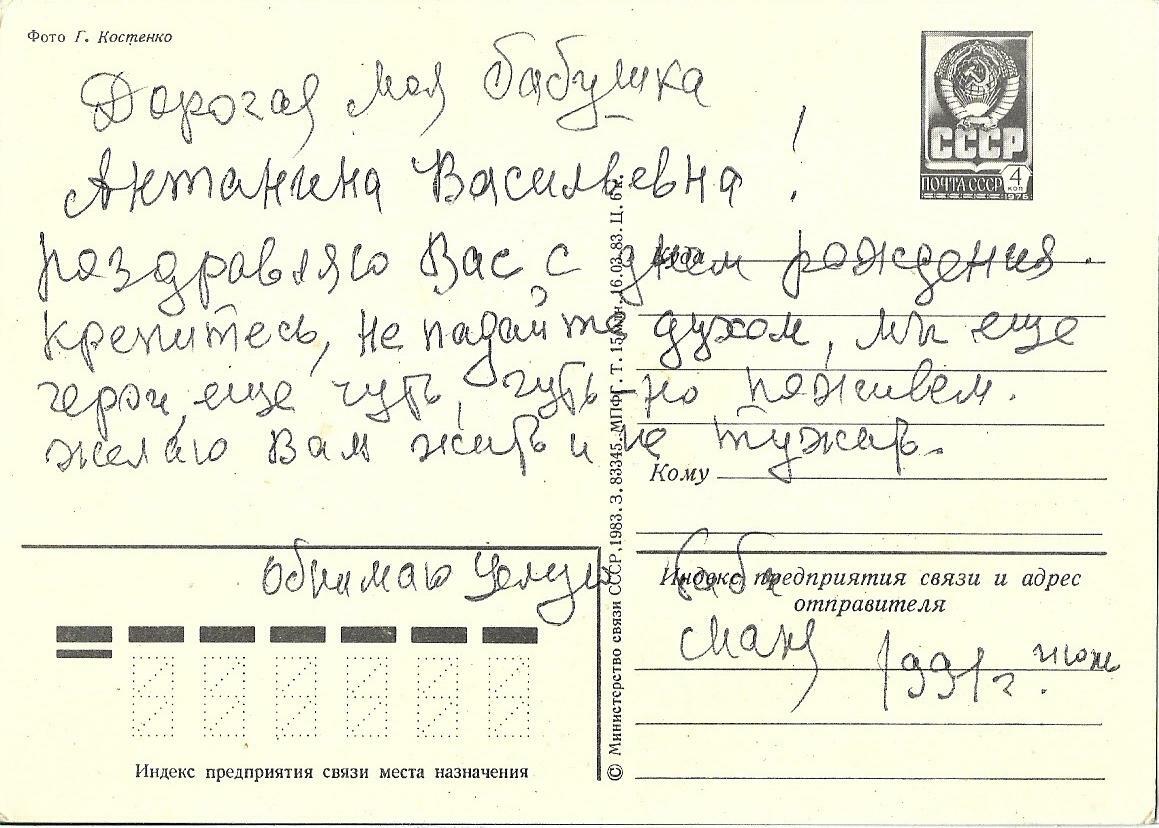 Фото Г. Костенко
СССР
ПОЧТА СССР 4 КОП
1976
Дорогая моя бабушка
Антанина Васильевна!
поздравляю Вас с днем рождения.
Крепитесь, не падайте духом, мы еще
герои, еще чуть, чуть-но поживем.
желаю Вам жить и не тужить.
Обнимаю Целую баба
Маня 1991 г. июнь
Куда
Кому
Индекс предприятия связи и адрес
отправителя
Индекс предприятия связи места назначения
© Министерство связи СССР, 1983. З. 83345. МПФГ. Т. 15 млн. 16.03.83. Ц. 6 к.